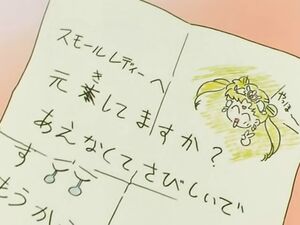 スモールレディーへ
元き してますか？
あえなくてさびしいで
す
もうか
やっほー